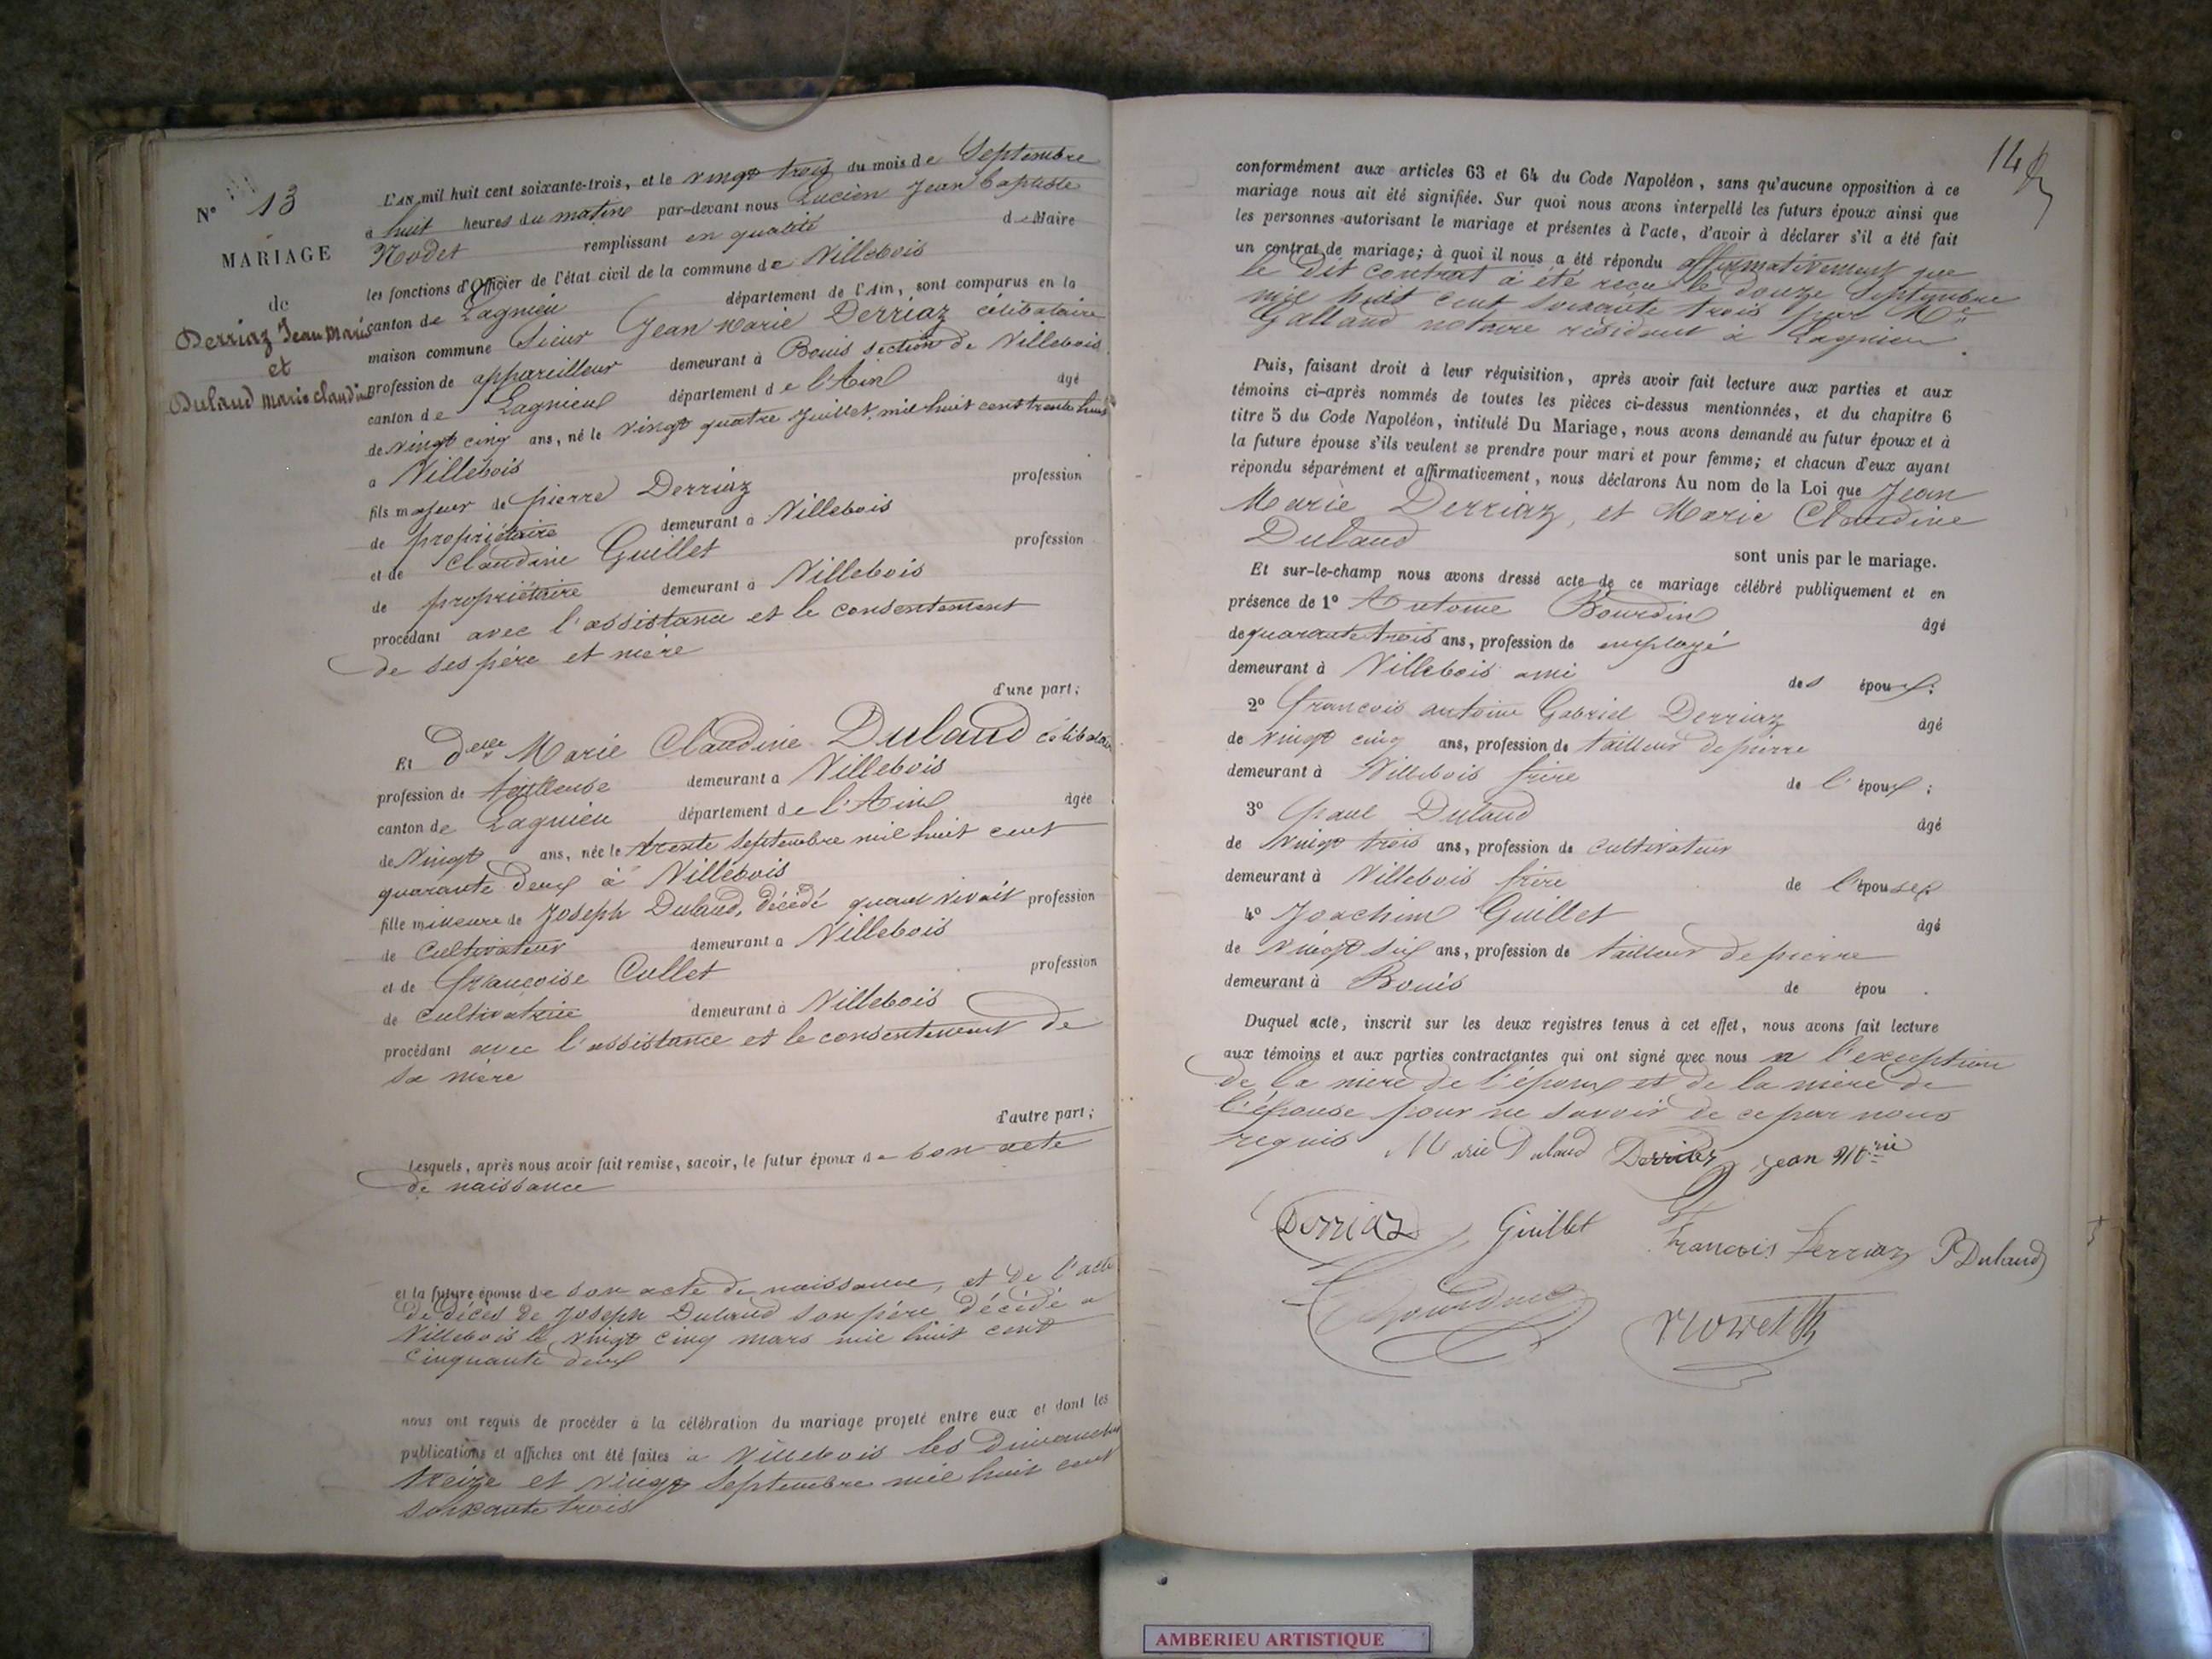 N° 13
MARIAGE
de
Derriaz Jean Marie
et
Dulaud marie claudine
L'AN mil huit cent soixante-trois, et le vingt trois du mois de Septembre
à huit heures du matin par-devant nous Lucien Jean baptiste
Nodet remplissant en qualité de Maire
les fonctions d'Officier de l'état civil de la commune de Villebois
canton de Lagnieu département de l'Ain, sont comparus en la
maison commune Sieur Jean Marie Derriaz célibataire
profession de appareilleur demeurant à Bouis section de Villebois
canton de Lagnieu département de l'Ain âgé
de vingt cinq ans, né le vingt quatre Juillet mil huit cent trente huit
à Villebois
fils majeur de pierre Derriaz profession
de propriétaire demeurant à Villebois
et de Claudine Guillet profession
de propriétaire demeurant à Villebois
procédant avec l'assistance et le consentement
de ses père et mère
d'une part;
Et delle Marie Claudine Dulaud célibataire
profession de tailleuse demeurant à Villebois
canton de Lagnieu département de l'Ain âgée
de vingt ans, née le trente septembre mil huit cent
quarante deux à Villebois
fille mineure de Joseph Dulaud, décédé quand vivait profession
de Cultivateur demeurant à Villebois
et de françoise Cullet profession
de cultivatrice demeurant à Villebois
procédant avec l'assistance et le consentement de
sa mère
d'autre part;
Lesquels, après nous avoir fait remise, savoir, le futur époux de son acte
de naissance
et la future épouse de son acte de naissance, et de l'acte
de décès de Joseph Dulaud son père décédé a
Villebois le vingt cinq mars mil huit cent
cinquante deux
nous ont requis de procéder à la célébration du mariage projeté entre eux et dont les
publications et affiches ont été faites à Villebois les Dimanches
treize et vingt Septembre mil huit cent
soixante trois
14
conformément aux articles 63 et 64 du Code Napoléon, sans qu'aucune opposition à ce
mariage nous ait été signifiée. Sur quoi nous avons interpellé les futurs époux ainsi que
les personnes autorisant le mariage et présentes à l'acte, d'avoir à déclarer s'il a été fait
un contrat de mariage; à quoi il nous a été répondu affirmativement que
le dit contrat à été reçu le douze Septembre
mil huit cent soixante trois par Me
Galland notaire résident à Lagnieu.
Puis, faisant droit à leur réquisition, après avoir fait lecture aux parties et aux
témoins ci-après nommés de toutes les pièces ci-dessus mentionnées, et du chapitre 6
titre 5 du Code Napoléon, intitulé Du Mariage, nous avons demandé au futur époux et à
la future épouse s'ils veulent se prendre pour mari et pour femme; et chacun d'eux ayant
répondu séparément et affirmativement, nous déclarons Au nom de la Loi que Jean
Marie Derriaz, et Marie Claudine
Dulaud
sont unis par le mariage.
Et sur-le-champ nous avons dressé acte de ce mariage célébré publiquement et en
présence de 1° Antoine Bourdin âgé
de quarante trois ans, profession de employé
demeurant à Villebois ami des époux;
2° françois antoine Gabriel Derriaz âgé
de vingt cinq ans, profession de tailleur de pierre
demeurant à Villebois frère de l'époux;
3° paul Dulaud âgé
de vingt trois ans, profession de cultivateur
demeurant à Villebois frère de l'épouse
4° Joachim Guillet âgé
de vingt six ans, profession de tailleur de pierre
demeurant à Bouis de épou .
Duquel acte, inscrit sur les deux registres tenus à cet effet, nous avons fait lecture
aux témoins et aux parties contractantes qui ont signé avec nous a l'exception
de la mère de l'époux et de la mère de
l'épouse pour ne savoir de ce par nous
requis Marie Dulaud Derriaz jean Mrie
Derriaz Guillet françois Derriaz P Dulaud
Bourdin Nodet
AMBERIEU ARTISTIQUE